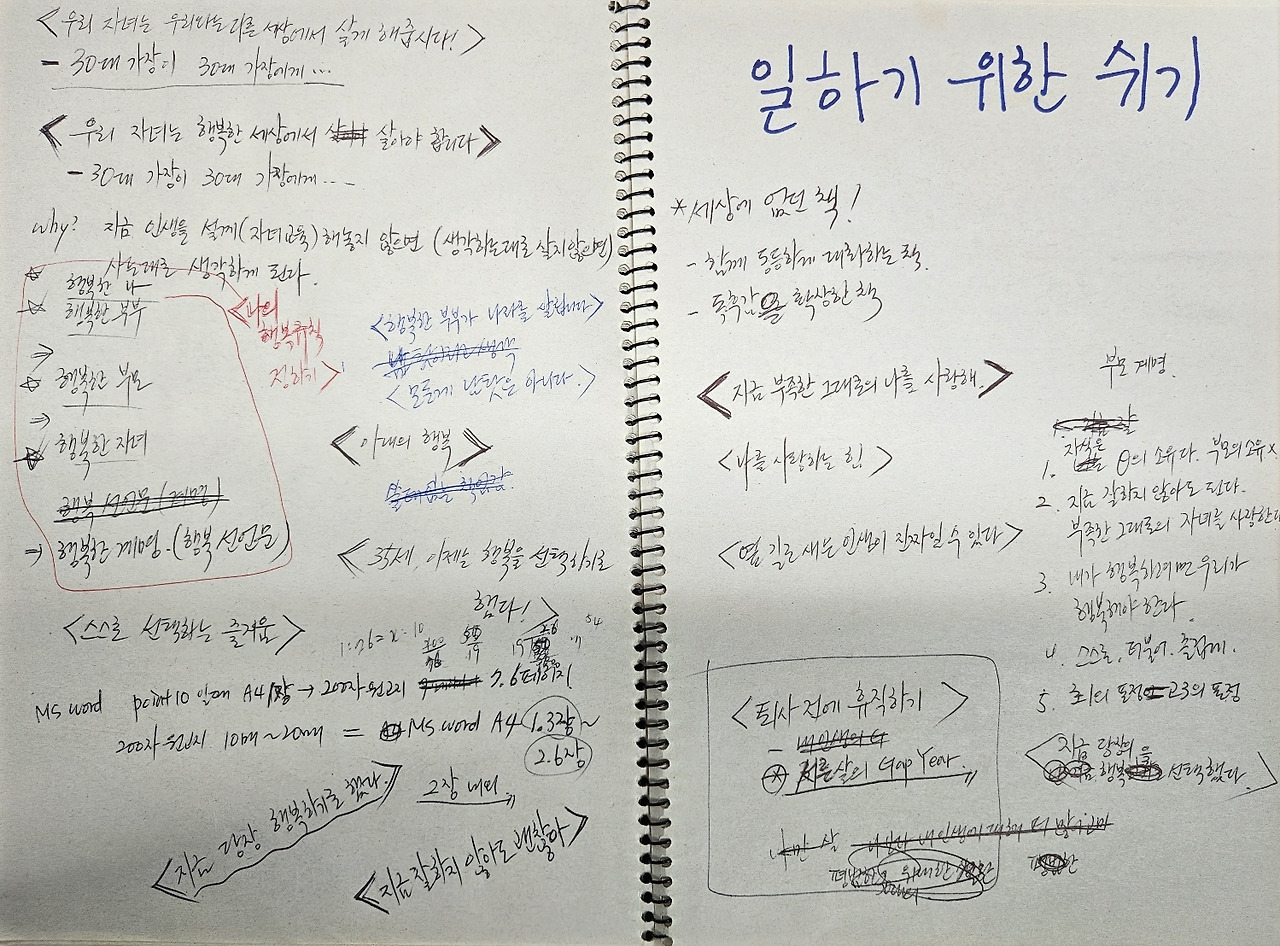 <우리 자녀는 우리와는 다른 세상에서 살게 해줍시다!>
- 30대 가장이 30대 가장에게...
<우리 자녀는 행복한 세상에서 살아야 합니다>
- 30대 가장이 30대 가장에게...
why? 지금 인생을 설계(자녀교육)해놓지 않으면 (생각하는대로 살지않으면)
사는대로 생각하게 된다.
행복한 나
행복한 부부
<나의
행복규칙
정하기>
⇒
행복한 부모
⇒
행복한 자녀
행복 선언문(계명)
→ 행복한 계명.(행복 선언문)
<행복한 부부가 나라를 살립니다>
<모든게 남탓은 아니다.>
<아내의 행복>
<35세, 이제는 행복을 선택하기로
했다!>
<스스로 선택하는 즐거움>
MS word point10 일때 A4 1장 → 200자 원고지 7.6페이지
200자 원고지 10매~20매 = MS word A4 1.3장~
2.6장
2장 내외
<지금 당장 행복하기로 했다.>
<지금 잘하지 않아도 괜찮아>
일하기 위한 쉬기
*세상에 없던 책!
- 함께 동등하게 대화하는 책.
- 독후감을 확상한 책
<지금 부족한 그대로의 나를 사랑해.>
<나를 사랑하는 힘!>
<옆 길로 새는 인생이 진짜일 수 있다>
<퇴사 전에 휴직하기>
- 내 인생의 G
서른살의 Gap Year.
부모 계명.
1. 자식은 의 소유다. 부모의 소유 x
2. 지금 잘하지 않아도 된다.
부족한 그대로의 자녀를 사랑한다
3. 내가 행복하려면 우리가
행복해야 한다.
4. 스스로, 더불어, 즐겁게.
5. 초1의 표정 = 고3의 표정
<지금 당장의
행복을 선택했다.>